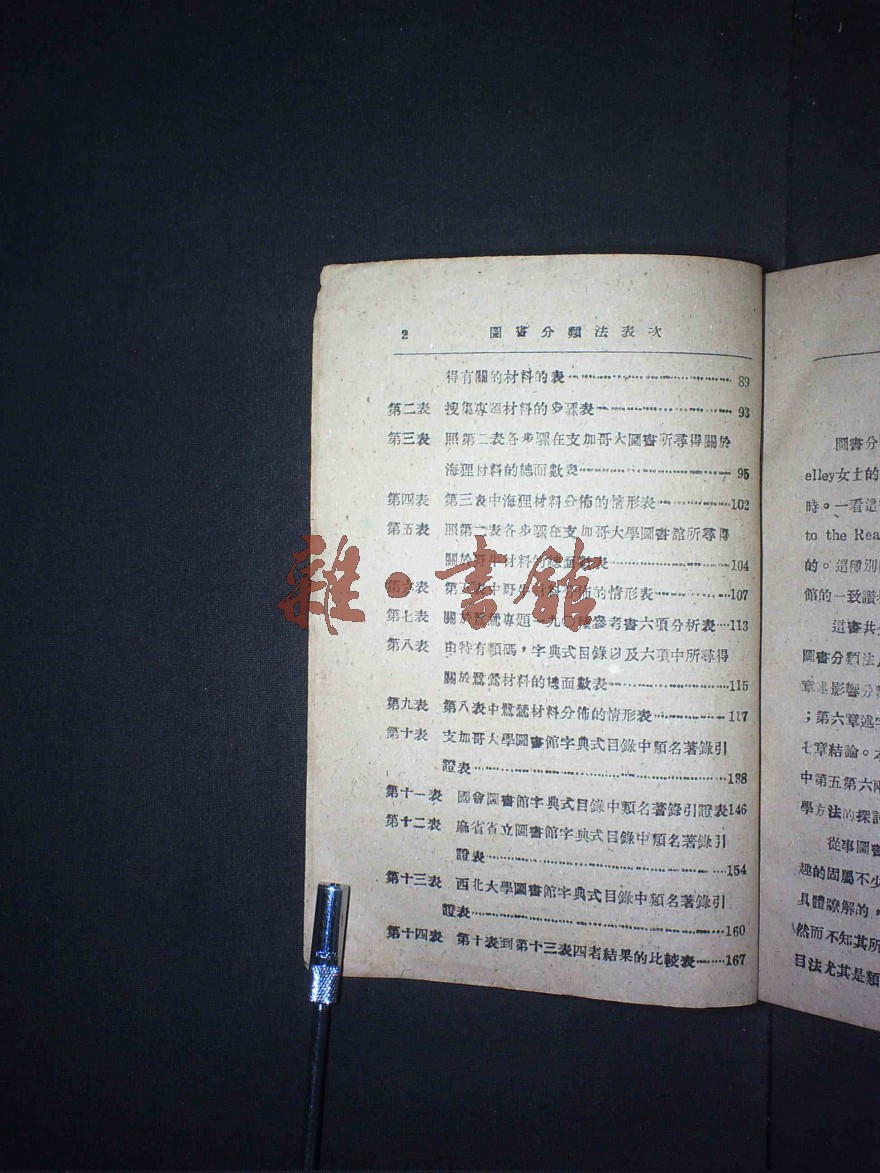 2 圖書分類法表次
得有關的材料的表 89
第二表 搜集專題材料的步驟表 93
第三表 照第二表各步驟在支加哥大圖書所尋得關於
海狸材料的總面數表 95
第四表 第三表中海狸材料分佈的情形表 102
第五表 照第二表各步驟在支加哥大學圖書館所尋得
關於野牛材料的總面數表 104
第六表 第五表中野牛材料分佈的情形表 107
第七表 關於鴛鴦專題一九〇種參考書六項分析表 113
第八表 由特有類碼，字典式目錄以及六項中所尋得
關於鴛鴦材料的總面數表 115
第九表 第八表中鴛鴦材料分佈的情形表 117
第十表 支加哥大學圖書館字典式目錄中類名著錄引
證表 138
第十一表 國會圖書館字典式目錄中類名著錄引證表146
第十二表 麻省省立圖書館字典式目錄中類名著錄引
證表 154
第十三表 西北大學圖書館字典式目錄中類名著錄引
證表 160
第十四表 第十表到第十三表四者結果的比較表 167
圖書分
elley女士的
時。一看這
to the Rea
的。這種別
館的一致讚
這書共
圖書分類法
章述影響分
；第六章述字
七章結論。
中第五第六兩
學方法的探討
從事圖書
趣的固屬不少
具體瞭解的，
然而不知其所
目法尤其是類
雜·書館